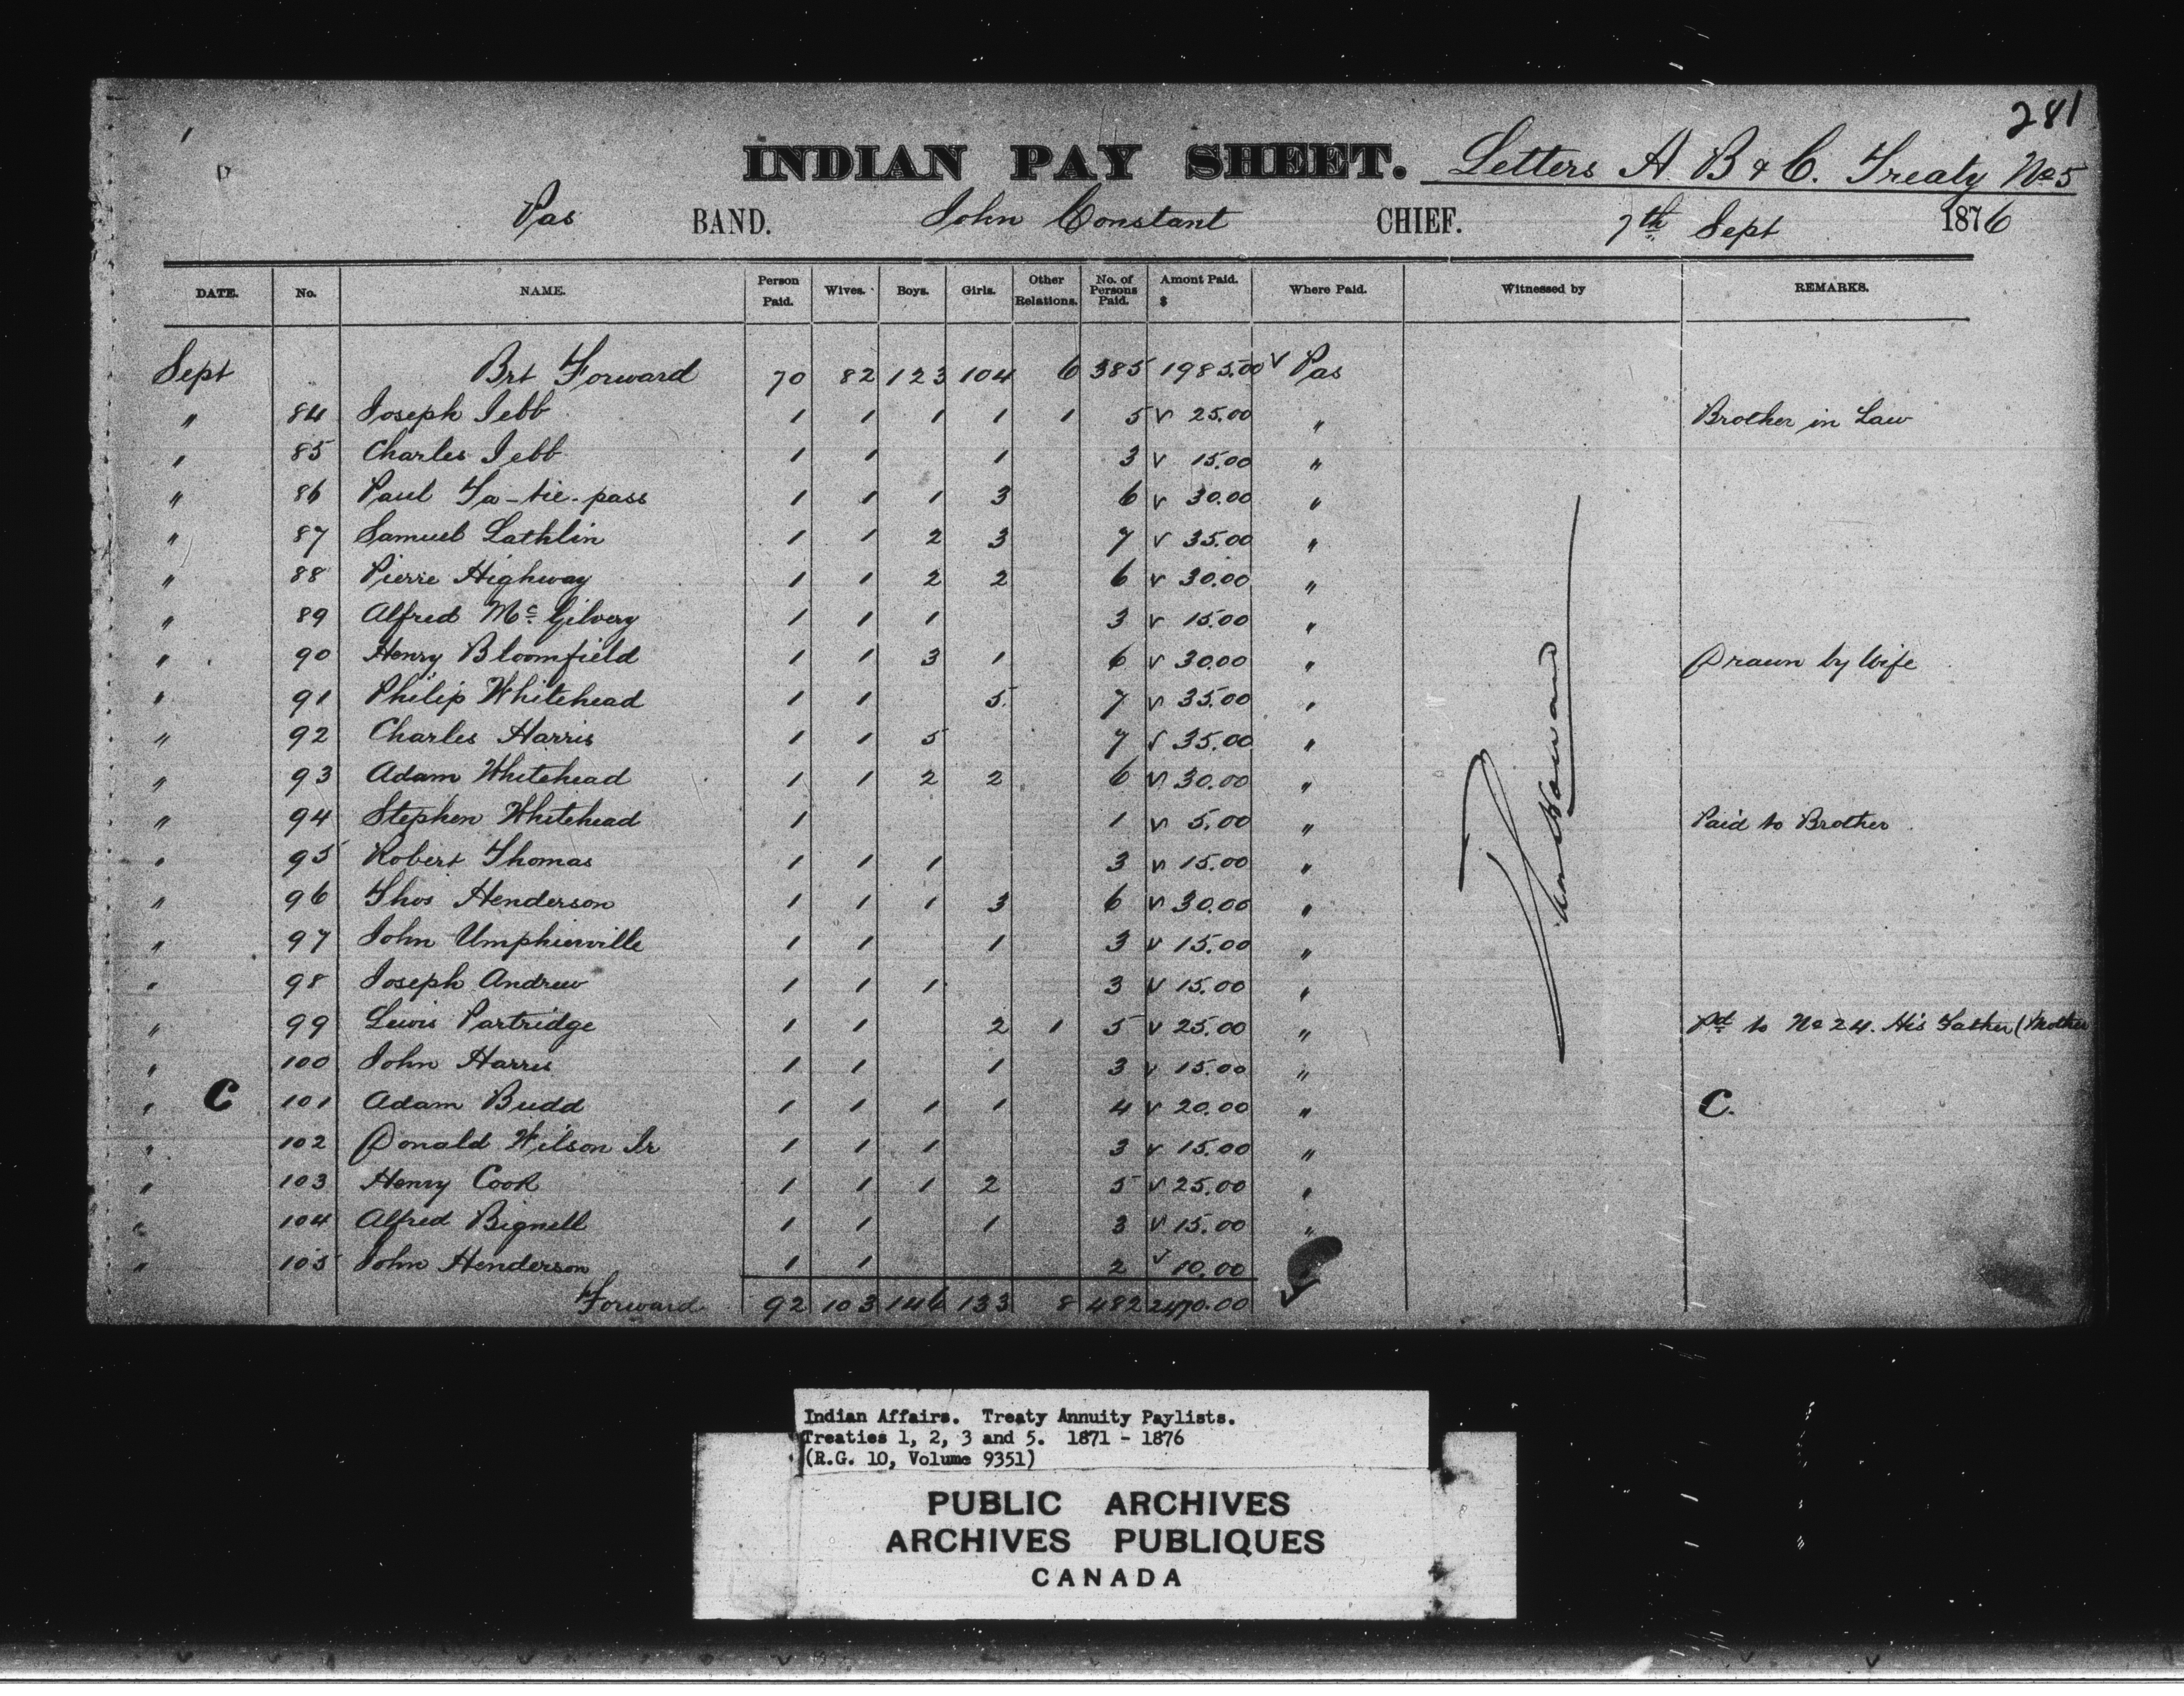 281
INDIAN PAY SHEET. Letters A. B & C. Treaty No 5
Pas BAND. John Constant CHIEF. 7th Sept 1876
DATE. No. NAME. Person Paid. Wives. Boys. Girls. Other Relations. No. of Persons Paid. Amont Paid. $ Where Paid. Witnessed by REMARKS.
Sept Brt Forward 70 82 123 104 6 385 1985.00 v Pas
" 84 Joseph Jebb 1 1 1 1 1 5 v 25.00 " Brother in Law
" 85 Charles Jebb 1 1 1 3 v 15.00 "
" 86 Paul Ta-tie-pass 1 1 1 3 6 v 30.00 "
" 87 Samuel Lathlin 1 1 2 3 7 v 35.00 "
" 88 Pierre Highway 1 1 2 2 6 v 30.00 "
" 89 Alfred Mc Gilvery 1 1 1 3 v 15.00 "
" 90 Henry Bloomfield 1 1 3 1 6 v 30.00 " Drawn by Wife
" 91 Philip Whitehead 1 1 5 7 v 35.00 "
" 92 Charles Harris 1 1 5 7 v 35.00 "
" 93 Adam Whitehead 1 1 2 2 6 v 30.00 "
" 94 Stephen Whitehead 1 1 v 5.00 " Paid to Brother
" 95 Robert Thomas 1 1 1 3 v 15.00 "
" 96 Thos Henderson 1 1 1 3 6 v 30.00 "
" 97 John Umpherville 1 1 1 3 v 15.00 "
" 98 Joseph Andrew 1 1 1 3 v 15.00 "
" 99 Lewis Partridge 1 1 2 1 5 v 25.00 " Pd to No 24. His Father (Mother
" 100 John Harris 1 1 1 3 v 15.00 "
" C 101 Adam Budd 1 1 1 1 4 v 20.00 " C.
" 102 Donald Wilson Jr 1 1 1 3 v 15.00 "
" 103 Henry Cook 1 1 1 2 5 v 25.00 "
" 104 Alfred Bignell 1 1 1 3 v 15.00 "
" 105 John Henderson 1 1 2 v 10.00
Forward 92 103 146 133 8 482 2470.00 v
Indian Affairs. Treaty Annuity Paylists.
Treaties 1, 2, 3 and 5. 1871 - 1876
(R.G. 10, Volume 9351)
PUBLIC ARCHIVES
ARCHIVES PUBLIQUES
CANADA